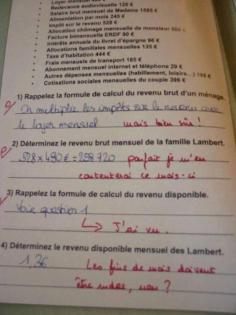 Redevance audiovisuelle 120 €
Salaire brut mensuel de Madame 1685 €
Alimentation par mois 240 €
Impôt sur le revenu 528 €
Allocation chômage mensuelle de monsieur
Facture bimensuelle ERDF 90 €
Intérêts annuels du livret d'épargne 96 €
Allocations familiales mensuelles 135 €
Taxe d'habitation 444 €
Frais mensuels de transport 185 €
Abonnement mensuel internet et téléphone 29 €
Autres dépenses mensuelles (habillement, loisirs...)
Cotisations sociales mensuelles du couple 396 €
1) Rappelez la formule de calcul du revenu brut d'un ménage.
On multiplie les impôts sur le revenu avec
le loyer mensuel mais bien sûr !
2) Déterminez le revenu brut mensuel de la famille Lambert.
528 x 490 € = 258 720 parfait je m'en
contenterai ce mois-ci
3) Rappelez la formule de calcul du revenu disponible.
Voir question 1
↳ J'ai vu
4) Déterminez le revenu disponible mensuel des Lambert.
1,36 Les fins de mois doivent
être rudes, non ?